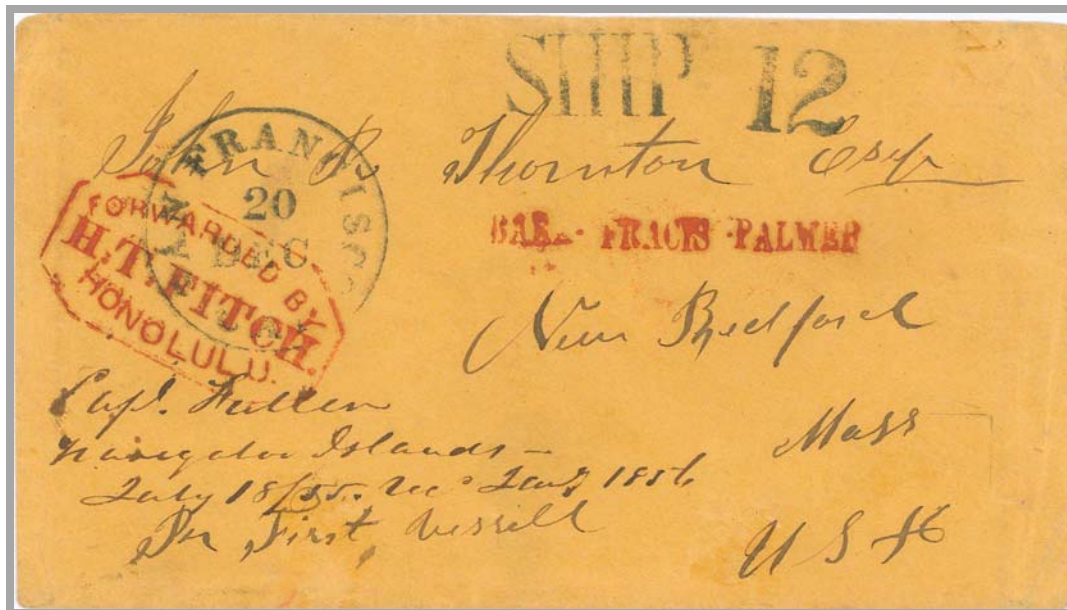 SHIP 12
John R Thornton Esqr
SAN FRANCISCO
20
DEC
FORWARDED BY
H.T. FITCH.
HONOLULU.
BARK FRACIS PALMER
New Bedford
Mass
U S A
Capt. Fuller
Navigator Islands -
July 18/55. Rec Jany 1856
Per First vessell